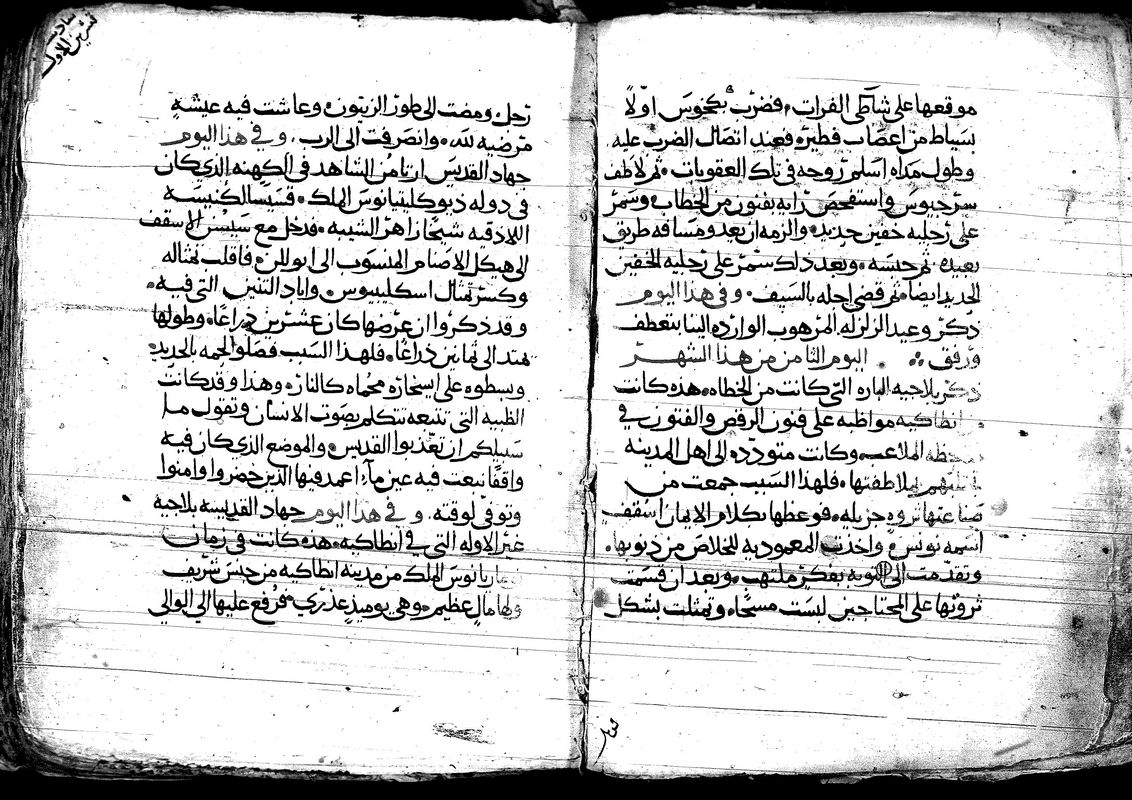 موقعها على شاطى الفرات، فضرب بكخوس اولًا
بسياط من اعصاب فطيره فعند اتصال الضرب عليه
وطول مداه اسلم روحه في تلك العقوبات، ثم لاطف
سرجيوس واستفحص رايه بفنون من الخطاب وسمر
على رجليه خفين حديد، والزمه ان يعدو مسافه طريق
بعيده، ثم حبسه، وبعد ذلك سمر على رجليه الخفين
الحديد ايضًا، ثم قضى اجله بالسيف. وفي هذا اليوم
ذكر وعيد الزلزله المرهوب الوارده الينا بتعطف
ورفق. اليوم الثامن من هذا الشهر
ذكر بلاجيه الباره التي كانت من الخطاه، هذه كانت
انطاكيه مواظبه على فنون الرقص والفنون في
الملاعب، وكانت متودده الى اهل المدينه
بملاطفتها، فلهذا السبب جمعت من
صناعتها ثروه جزيله، فوعظها بكلام الايمان اسقف
اسمه نونس، واخذت المعموديه للخلاص من ذنوبها،
وتقدمت الى التوبه بفكر ملتهب، وبعد ان قسمت
ثروتها على المحتاجين لبست مسحًا، وتمثلت بشكل
سادس
تشرين الاول
رجل، ومضت الى طور الزيتون، وعاشت فيه عيشةٍ
مرضيه لله، وانصرفت الى الرب. وفي هذا اليوم
جهاد القديس ارتامن الشاهد في الكهنه الذي كان
في دوله ديوكليتيانوس الملك، قسيسًا لكنيسة
اللادقيه شيخًا زاهر الشيبه، فدخل مع سيسن الاسقف
الى هيكل الاصنام المنسوب الى ابوللن، فاقلب تمثاله
وكسر تمثال اسكليبيوس، واباد التنين التي فيه،
وقد ذكروا ان عرضها كان عشرين ذراعًا، وطولها
يمتد الى ثمانين ذراعًا، فلهذا السبب فصلوا لحمه بالحديد
وبسطوه على اسخاره محماه كالنار، وهذا وقد كانت
الظبيه التي تتبعه تتكلم بصوت الانسان وتقول ما
سبيلكم ان تعذبوا القديس، والموضع الذي كان فيه
واقفًا نبعت فيه عين ماءٍ اعمد فيها الذين حضروا وامنوا
وتوفى لوقته. وفي هذا اليوم جهاد القديسه بلاجيه
غير الاوله التي في انطاكيه، هذه كانت في زمان
الملك من مدينه انطاكيه من جنس شريف
ولها مال عظيم، وهي يوميذٍ عذري، فرفع عليها الى الوالي